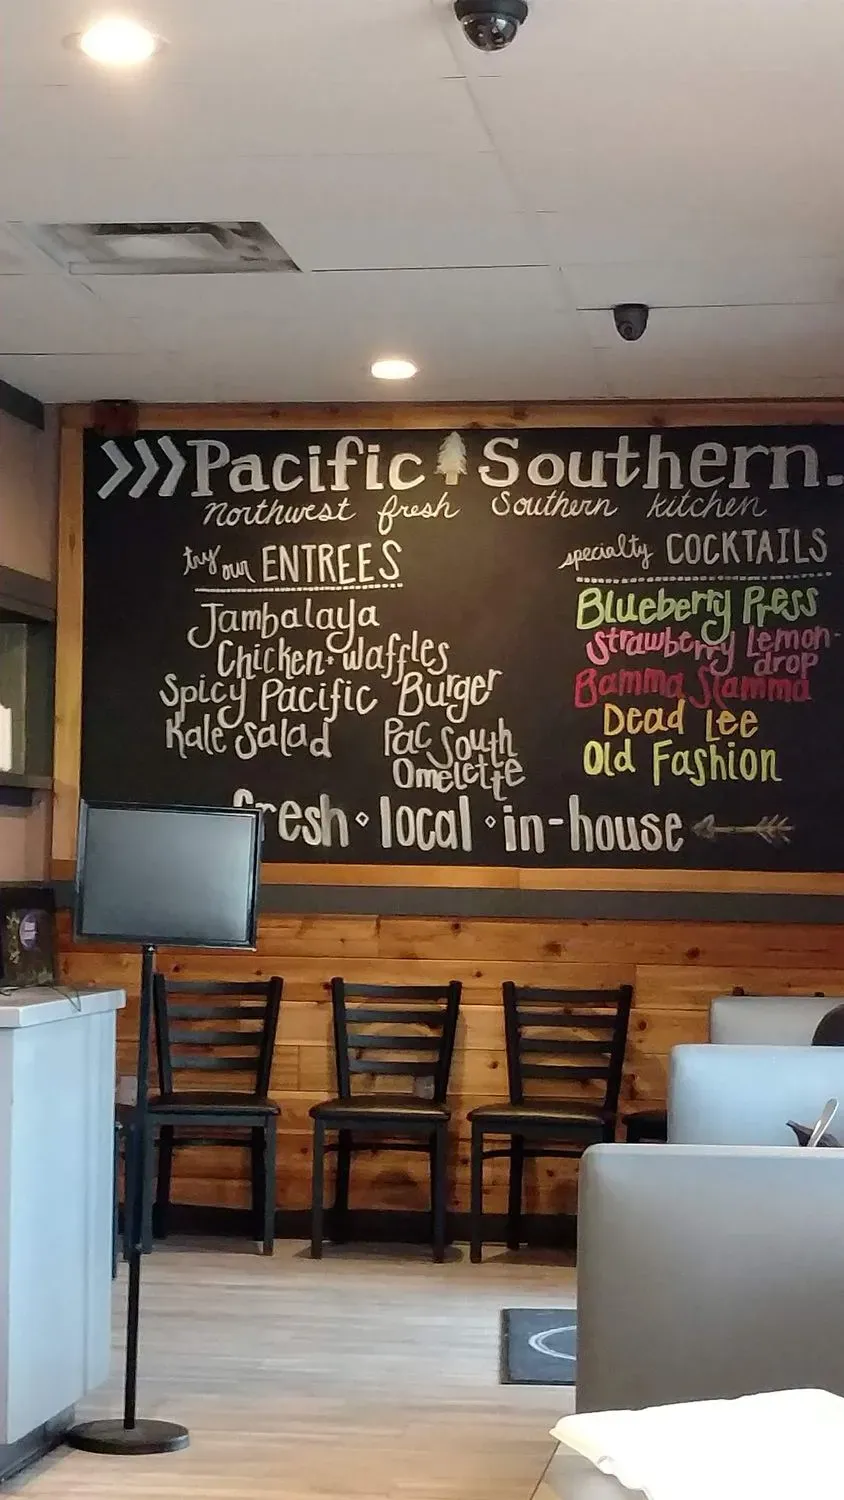 >>> Pacific Southern.
Northwest fresh Southern kitchen
try our ENTREES
Jambalaya
Chicken + waffles
Spicy Pacific Burger
Kale Salad
Pac South
Omelette
specialty COCKTAILS
Blueberry Press
Strawberry Lemon-
drop
Bamma Slamma
Dead Lee
Old Fashion
fresh • local • in-house